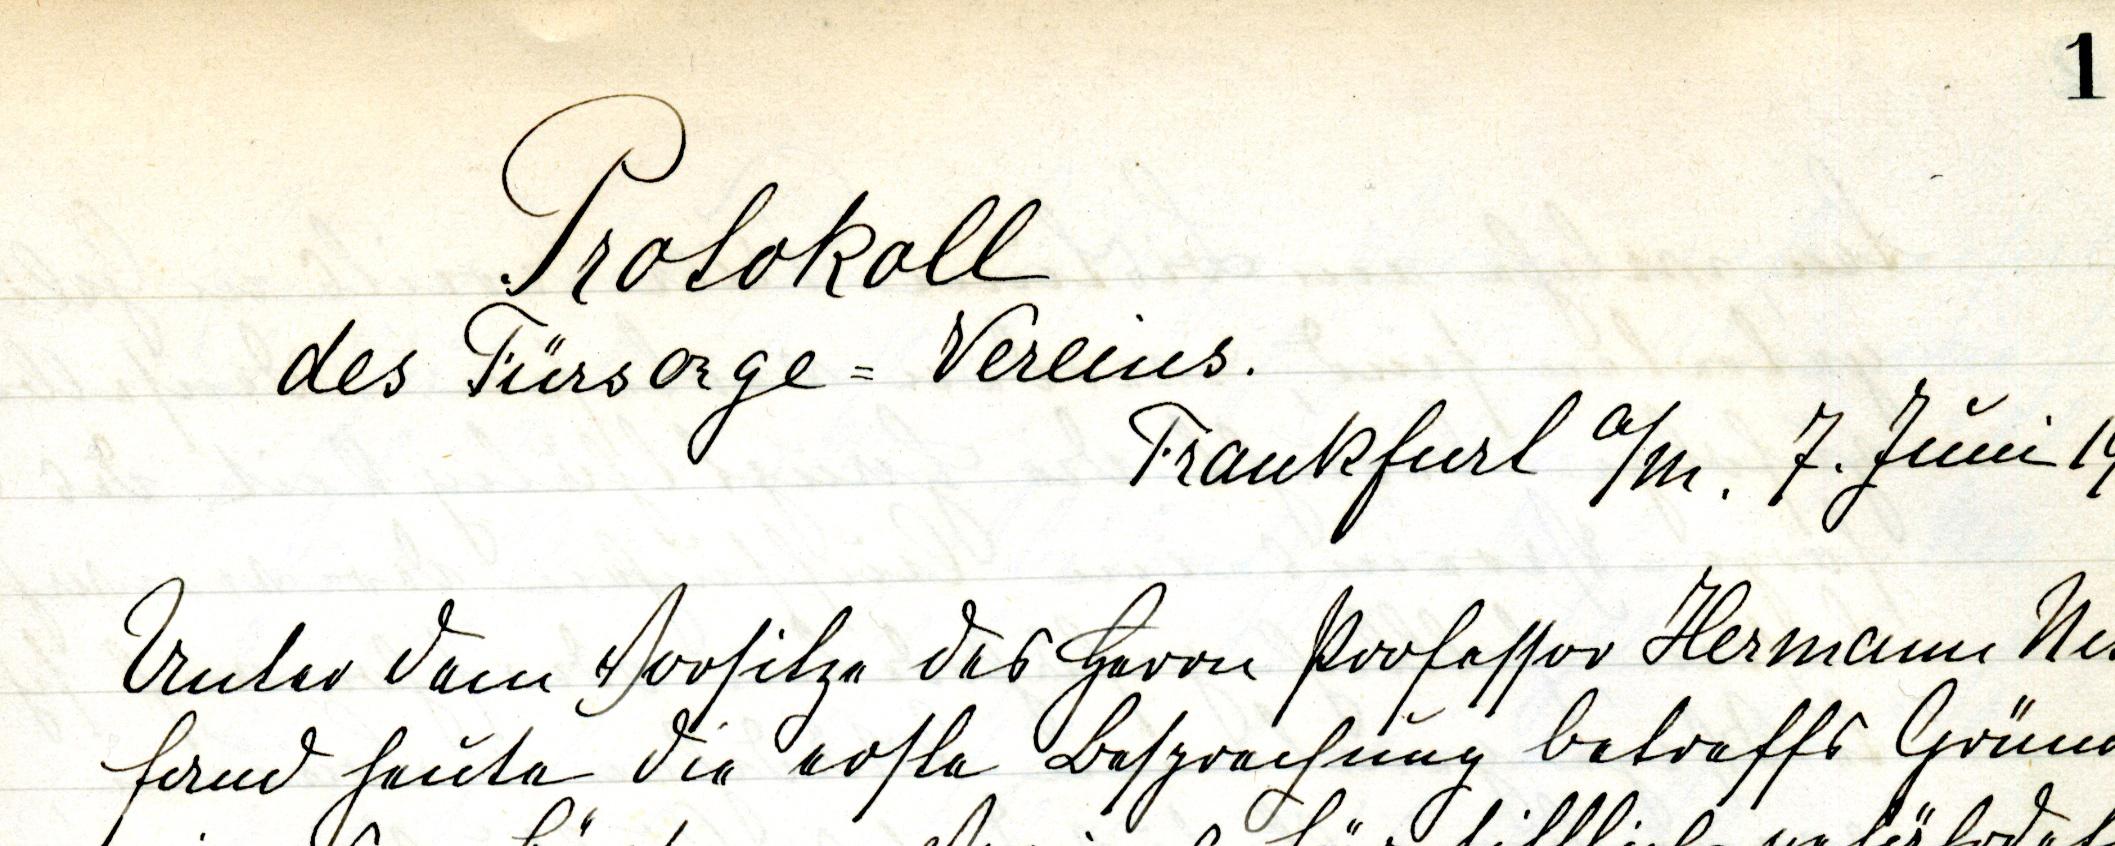 1
Protokoll
des Fürsorge = Vereins.
Frankfurt a/M. 7. Juni 19
Unter dem Vorsitze des Herrn Professor Hermann
fand heute die erste Besprechung betreffs
für sittlich